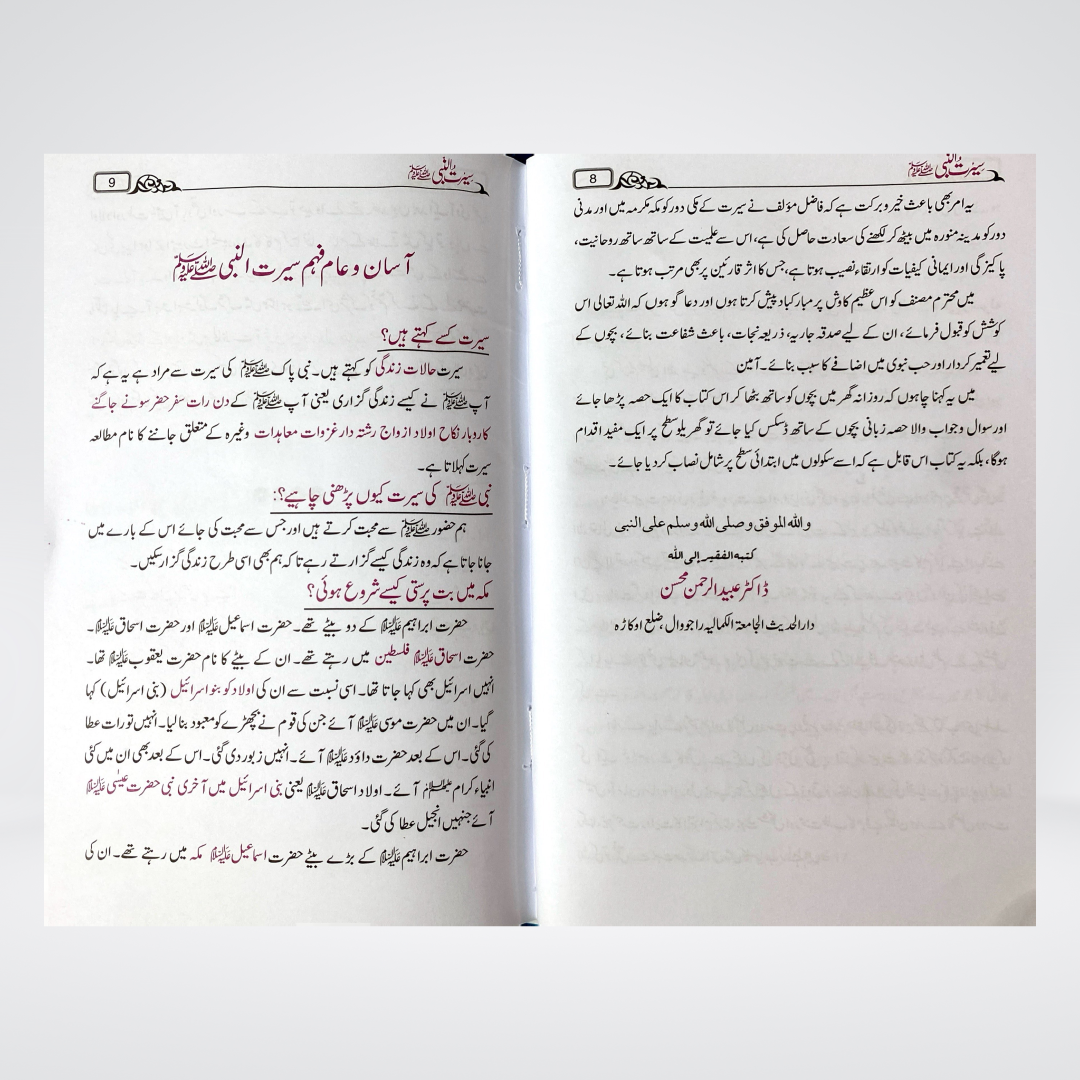 سیرت النبی ﷺ
8
یہ امر بھی باعث خیر و برکت ہے کہ فاضل مؤلف نے سیرت کے مکی دور کو مکہ مکرمہ میں اور مدنی
دور کو مدینہ منورہ میں بیٹھ کر لکھنے کی سعادت حاصل کی ہے، اس سے علمیت کے ساتھ ساتھ روحانیت،
پاکیزگی اور ایمانی کیفیات کو ارتقاء نصیب ہوتا ہے، جس کا اثر قارئین پر بھی مرتب ہوتا ہے۔
میں محترم مصنف کو اس عظیم کاوش پر مبارکباد پیش کرتا ہوں اور دعا گو ہوں کہ اللہ تعالی اس
کوشش کو قبول فرمائے، ان کے لیے صدقہ جاریہ، ذریعہ نجات، باعث شفاعت بنائے، بچوں کے
لیے تعمیر کردار اور حب نبوی میں اضافے کا سبب بنائے۔ آمین
میں یہ کہنا چاہوں کہ روزانہ گھر میں بچوں کو ساتھ بٹھا کر اس کتاب کا ایک حصہ پڑھا جائے
اور سوال و جواب والا حصہ زبانی بچوں کے ساتھ ڈسکس کیا جائے تو گھریلو سطح پر ایک مفید اقدام
ہوگا، بلکہ یہ کتاب اس قابل ہے کہ اسے سکولوں میں ابتدائی سطح پر شامل نصاب کر دیا جائے۔
والله الموفق وصلى الله وسلم على النبي
كتبه الفقير إلى الله
ڈاکٹر عبید الرحمن محسن
دار الحدیث الجامعۃ الکمالیہ راجووال، ضلع اوکاڑہ
سیرت النبی ﷺ
9
آسان و عام فہم سیرت النبی ﷺ
سیرت کسے کہتے ہیں؟
سیرت حالات زندگی کو کہتے ہیں۔ نبی پاک ﷺ کی سیرت سے مراد ہے یہ ہے کہ
آپ ﷺ نے کیسے زندگی گزاری یعنی آپ ﷺ کے دن رات سفر حضر سونے جاگنے
کاروبار نکاح اولاد ازواج رشتہ دار غزوات معاہدات وغیرہ کے متعلق جاننے کا نام مطالعہ
سیرت کہلاتا ہے۔
نبی ﷺ کی سیرت کیوں پڑھنی چاہیے؟:
ہم حضور ﷺ سے محبت کرتے ہیں اور جس سے محبت کی جائے اس کے بارے میں
جانا جاتا ہے کہ وہ زندگی کیسے گزارتے رہے تا کہ ہم بھی اسی طرح زندگی گزار سکیں۔
مکہ میں بت پرستی کیسے شروع ہوئی؟
حضرت ابراہیم علیہ السلام کے دو بیٹے تھے۔ حضرت اسماعیل علیہ السلام اور حضرت اسحاق علیہ السلام۔
حضرت اسحاق علیہ السلام فلسطین میں رہتے تھے۔ ان کے بیٹے کا نام حضرت یعقوب علیہ السلام تھا۔
انہیں اسرائیل بھی کہا جاتا تھا۔ اسی نسبت سے ان کی اولاد کو بنو اسرائیل (بنی اسرائیل) کہا
گیا۔ ان میں حضرت موسی علیہ السلام آئے جن کی قوم نے بچھڑے کو معبود بنا لیا۔ انہیں تورات عطا
کی گئی۔ اس کے بعد حضرت داؤد علیہ السلام آئے۔ انہیں زبور دی گئی۔ اس کے بعد بھی ان میں کئی
انبیاء کرام علیہم السلام آئے۔ اولاد اسحاق علیہ السلام یعنی بنی اسرائیل میں آخری نبی حضرت عیسٰی علیہ السلام
آئے جنہیں انجیل عطا کی گئی۔
حضرت ابراہیم علیہ السلام کے بڑے بیٹے حضرت اسماعیل علیہ السلام مکہ میں رہتے تھے۔ ان کی